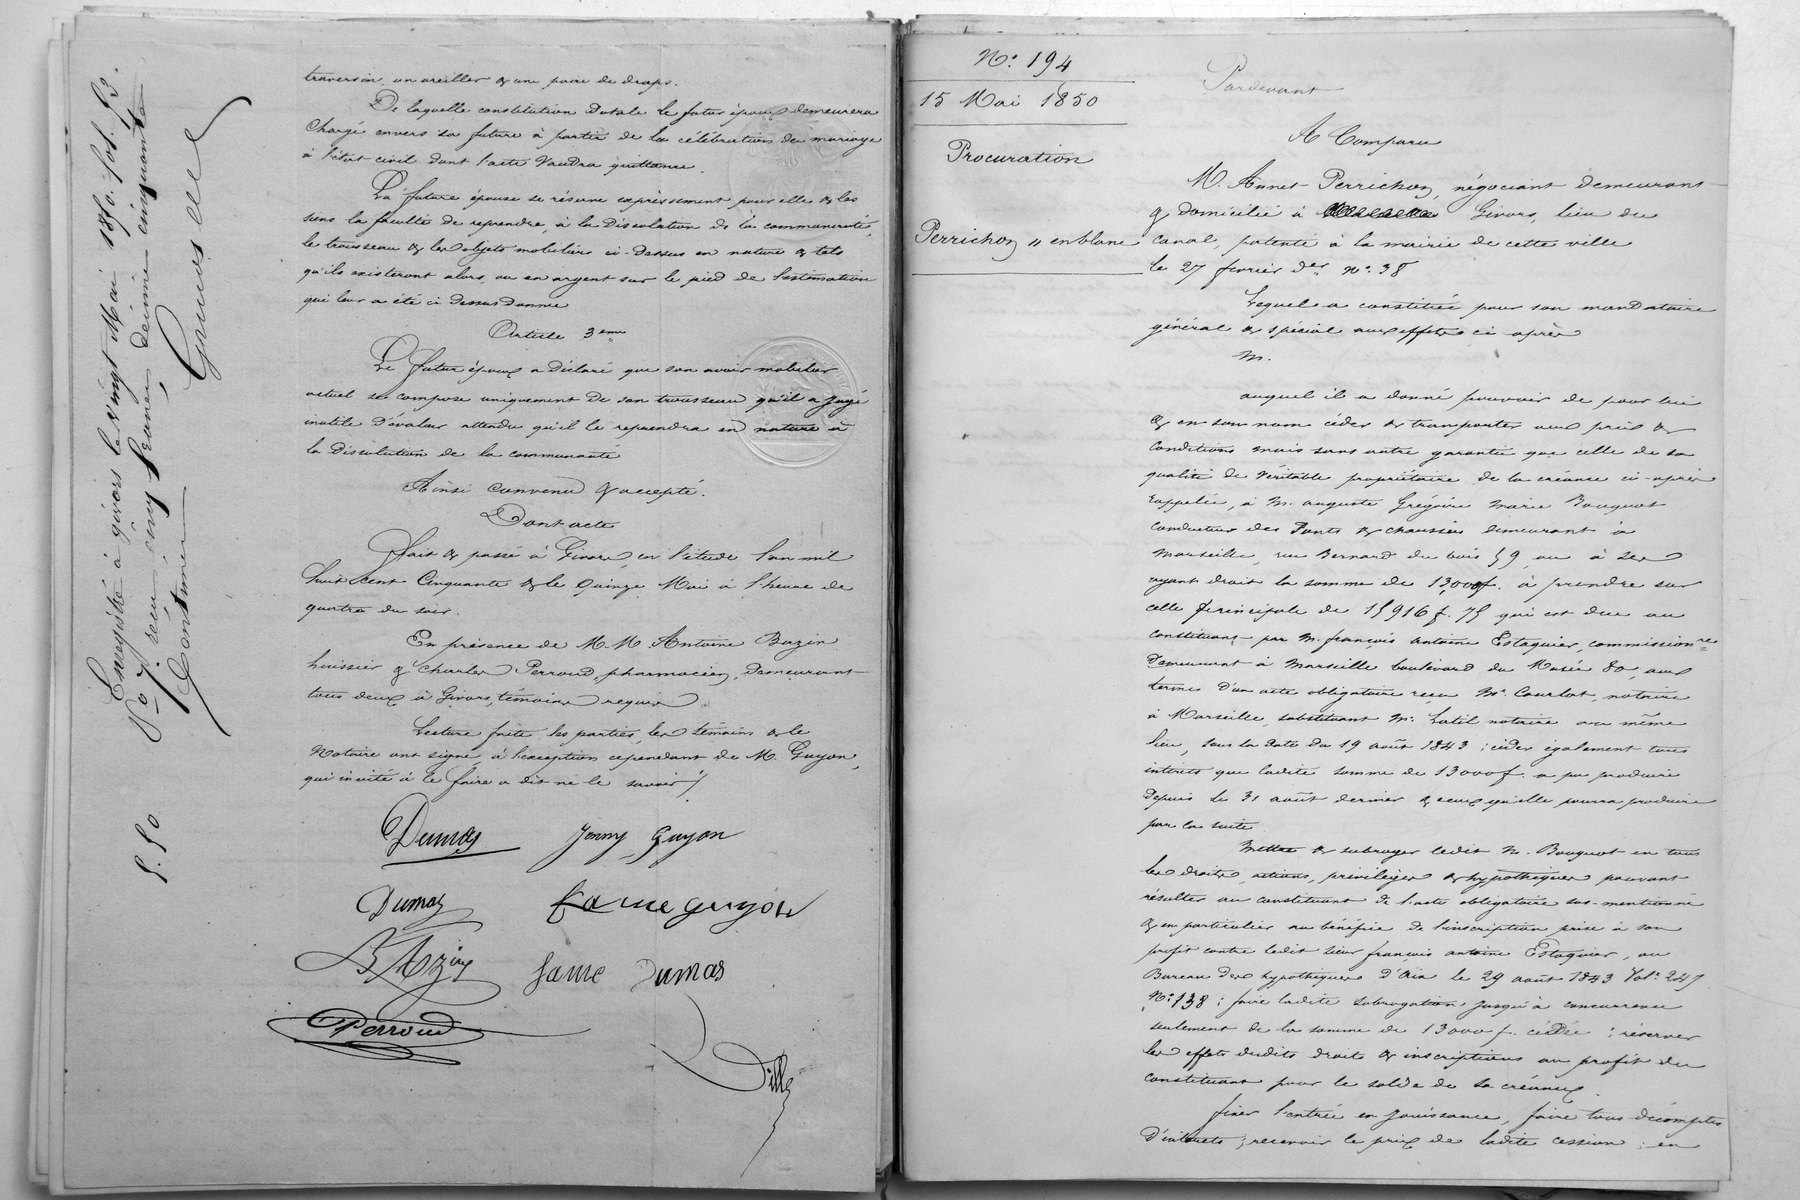 traversin, un oreiller & une paire de draps.
De laquelle constitution dotale le futur époux demeurera
Chargé envers sa future à partir de la célébration du mariage
à l'état civil dont l'acte vaudra quittance.
La future épouse se réserve expressément pour elle & les
siens la faculté de reprendre, à la dissolution de la communauté,
le trousseau & les objets mobiliers ci-dessus en nature & tels
qu'ils existeront alors, ou en argent sur le pied de l'estimation
qui leur a été ci dessus donnée
Article 3eme
Le futur époux a déclaré que son avoir mobilier
actuel se compose uniquement de son trousseau qu'il a jugé
inutile d'évaluer attendu qu'il le reprendra en nature à
la dissolution de la communauté
Ainsi convenu & accepté.
Dont acte
Fait & passé à Givors, en l'étude l'an mil
huit cent Cinquante & le quinze Mai à l'heure de
quatre du soir.
En présence de M. M Antoine Bazin
huissier & Charles Perroud, pharmacien, demeurant
tous deux à Givors, témoins requis
Lecture faite les parties, les témoins & le
Notaire ont signé, à l'exception cependant de M. Guyon,
qui invité à le faire a dit ne le savoir
Dumas Jenny Guyon
Dumas fame guyon
BAzin fame Dumas
Perroud
Enregistré à givors le vingt Mai 1850. fol. 53.
Vo 7. reçu cinq francs, décime cinquante
Centimes
5.50
No. 194
15 Mai 1850
Procuration
Perrichon " en blanc
Pardevant
A Comparu
M. Annet Perrichon, négociant demeurant
& domicilié à Givors, lieu du
Canal, patenté à la mairie de cette ville
le 27 fevrier der No. 38
Lequel a constitué pour son mandataire
général & spécial aux effets ci-après
M.
auquel il a donné pouvoir de pour lui
& en son nom céder & transporter aux prix &
Conditions mais sans autre garantie que celle de sa
qualité de véritable propriétaire de la créance ci-après
rappelée, à M. auguste Grégoire Marie Bouquot
conducteur des Ponts & chaussées demeurant à
Marseille, rue Bernard du bois 59, ou à ses
ayant droit la somme de 13,000f. à prendre sur
celle principale de 15916 f. 75 qui est due au
constituant par M. françois antoine Estaquier, commissionre
demeurant à Marseille boulevard du Musée 80, aux
termes d'un acte obligatoire reçu Me. Courtot, notaire
à Marseille, substituant Me. Latil notaire au même
lieu, sous la date du 19 août 1843 ; céder également tous
intérets que ladite somme de 13000f. a pu produire
depuis le 31 août dernier & ceux qu'elle pourra produire
par la suite
Mettre & subroger ledit M. Bouquot en tous
les droits, actions, privilèges & hypothèques pouvant
résulter au constituant de l'acte obligatoire sus-mentionné
& en particulier au bénéfice de l'inscription prise à son
profit contre ledit sieur françois antoine Estaquier, au
Bureau des hypothèques d'Aix le 29 août 1843 Vol. 247
No. 138 ; faire ladite subrogation jusqu'à concurrence
seulement de la somme de 13000f. cédée ; réserver
les effets desdits droits & inscriptions au profit du
constituant pour le solde de sa créance
fixer l'entrée en jouissance, faire tous décomptes
d'intérets ; recevoir le prix de ladite cession ; en